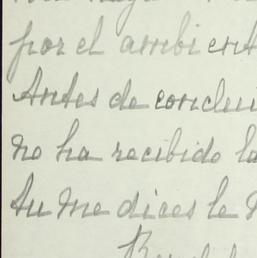 por el ambient
Antes de conclui
no ha recibido la
tu me dices le